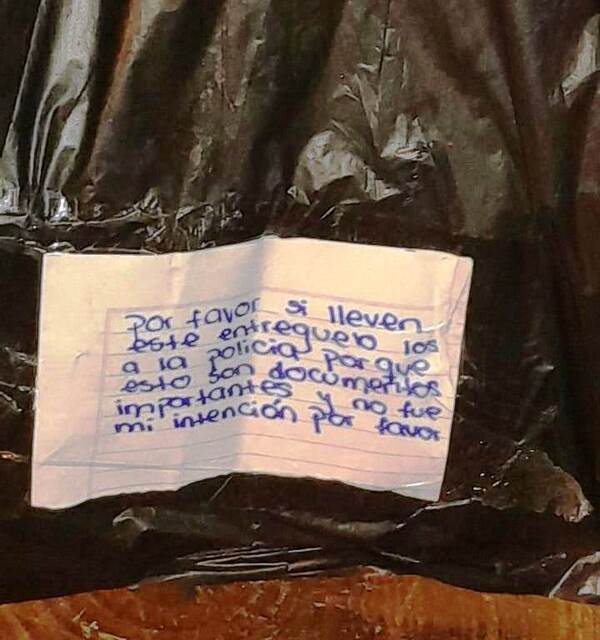 por favor si lleven
este entreguelo los
a la policia porque
esto son documentos
importantes y no fue
mi intención por favor